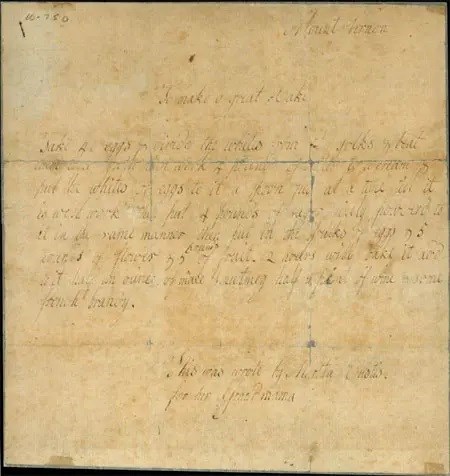 10-250
Mount Vernon
To make a great Cake
Take 40 eggs & divide the whites from the yolks & beat
them to a froth work 4 pounds of butter to a cream &
put the whites of eggs to it a spoon full at a time till it
is well work'd then put 4 pounds of sugar finely powderd to
it in the same manner then put in the yolks of eggs & 5
pounds of flower & 5 pounds of fruit. 2 hours will bake it add
to it half an ounce of mace 1 nutmeg half a pint of wine & some
french brandy.
This was wrote by Martha Custis
for her Grandmama